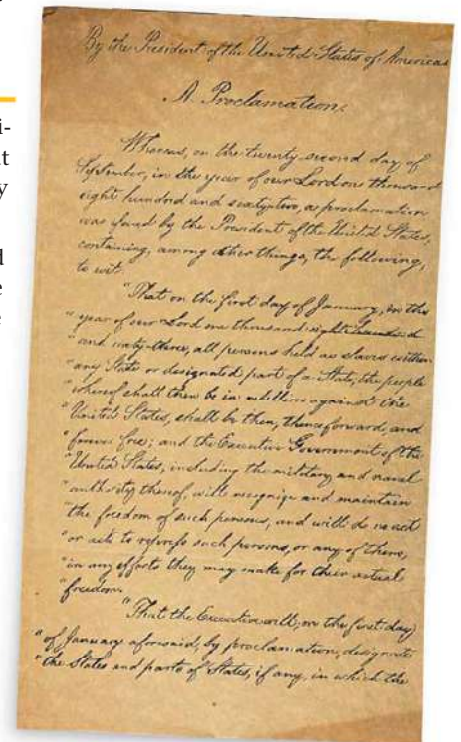 By the President of the United States of America:
A Proclamation.
Whereas, on the twenty-second day of
September, in the year of our Lord one thousand
eight hundred and sixty-two, a proclamation
was issued by the President of the United States,
containing, among other things, the following,
to wit:
"That on the first day of January, in the
"year of our Lord one thousand eight hundred
"and sixty-three, all persons held as slaves within
"any State or designated part of a State, the people
"whereof shall then be in rebellion against the
"United States, shall be then, thenceforward, and
"forever free; and the Executive Government of the
"United States, including the military and naval
"authority thereof, will recognize and maintain
"the freedom of such persons, and will do no act
"or acts to repress such persons, or any of them,
"in any efforts they may make for their actual
"freedom.
"That the Executive will, on the first day
"of January aforesaid, by proclamation, designate
"the States and parts of States, if any, in which the